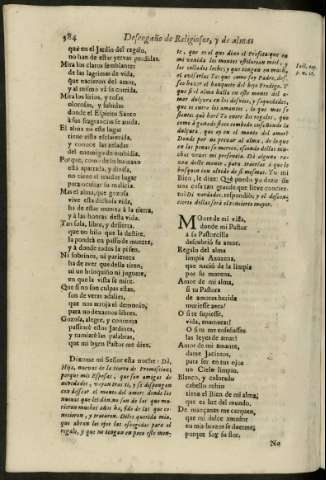 584 Desengaño de Religiosos, y de almas
que en el Jardin del regalo,
no han de estar yervas perdidas.
Mira los claros semblantes
de las lagrimas de vida,
que nacieron del amor,
y al mismo vā la corrida.
Mira los lirios, y rosas
olorosas, y subidas
donde el Espiritu Santo
à sus fragrancias se anida.
El alma en este lugar
tiene vista esclarecida,
y conoce las celadas
del enemigo
Porque, como de lo humano
està apartada, y dividida,
no tiene el traidor lugar
para ocultar su malicia.
Mas el alma, que gozava
vive esta dichosa vida,
ha de estar muerta à la tierra,
y à las honras desta vida.
Tan sola, libre, y desierta,
que no hijo que la distrae,
la pondrà en passo de muerte,
y à donde todos la pisen.
Ni sobrino, ni pariente
ha de aver que della tiren,
ni un brinquiño ni juguete,
en que la vista se mire.
Que si no son culpas estas,
son de veras adalies,
que nos arroja el demonio,
para no dexarnos libres.
Gozosa, alegre, y contenta
passeavè estas Jardines,
y rumiarè las palabras,
que mi buen Pastor me dize.
Dixome mi Señor esta noche: Dì,
Hija, nuevas de la tierra de Promission;
porque mis Esposas, que son amigas de
novedades, vayan tras ti, y se dispongan
con dessear el monte del amor: donde las
nuevas que les dieron son de las que mu-
rieron muchos años ha, sin de las que co-
mieron, y trataron. Diles querida mia,
que abran los ojos las escogidas para el
regalo, y que no tengan en poco este mon-
te, que es el que dixo el Profeta: que en
mi venida los montes destilaran miel, y
los collados leche; y que tengan en mucho
el avisarlas Yo: que como soy Padre, des-
seo hazer el banquete del hijo Prodigo. Y
que si el alma halla en este monte del a-
mor dulçura en los desseos, y saquedades,
que es entre los amantes. lo que mas se
siente; què harè Yo entre los regalos, que
como à grandes siervos combido
dulçura, que ay en el monte del amor?
Donde por no privar al alma, de lo que
en las penas se merece, usando dellas mu-
chas vezes me presentia. Dà alguna ra-
zon deste monte, para traerlas à que le
busquen con olvido de sì mismas. Yo mi
Bien, le dixe: Què puedo yo dezir sin
con tan grande que lleve concier-
to? Di verdades, respondiò; y el desen-
cierto dellas serà el concierto mayor.
Monte de mi vida,
donde mi Pastor
à su Pastorcilla
descubriò su amor.
Regalo del alma
limpia Azucena,
que naciò de la limpia
por su morena.
Amor de mi alma,
si tu Pastora
de amores herida
muriesse aora!
O si te supiesse,
vida, numerar!
O si tu me enseñasses
las leyes de amar!
Amor de mi amante,
dame Jacintos,
para ser en mis ojos
un Cielo limpio.
Blanco, y colorado
cabello rubio
tiene el Bien de mi alma;
que es luz del mundo.
De continentes me compren,
que mi dulce amador
en mis braços se duerme,
porque soy su flor.
No
Joel. cap.
3. n. 18.